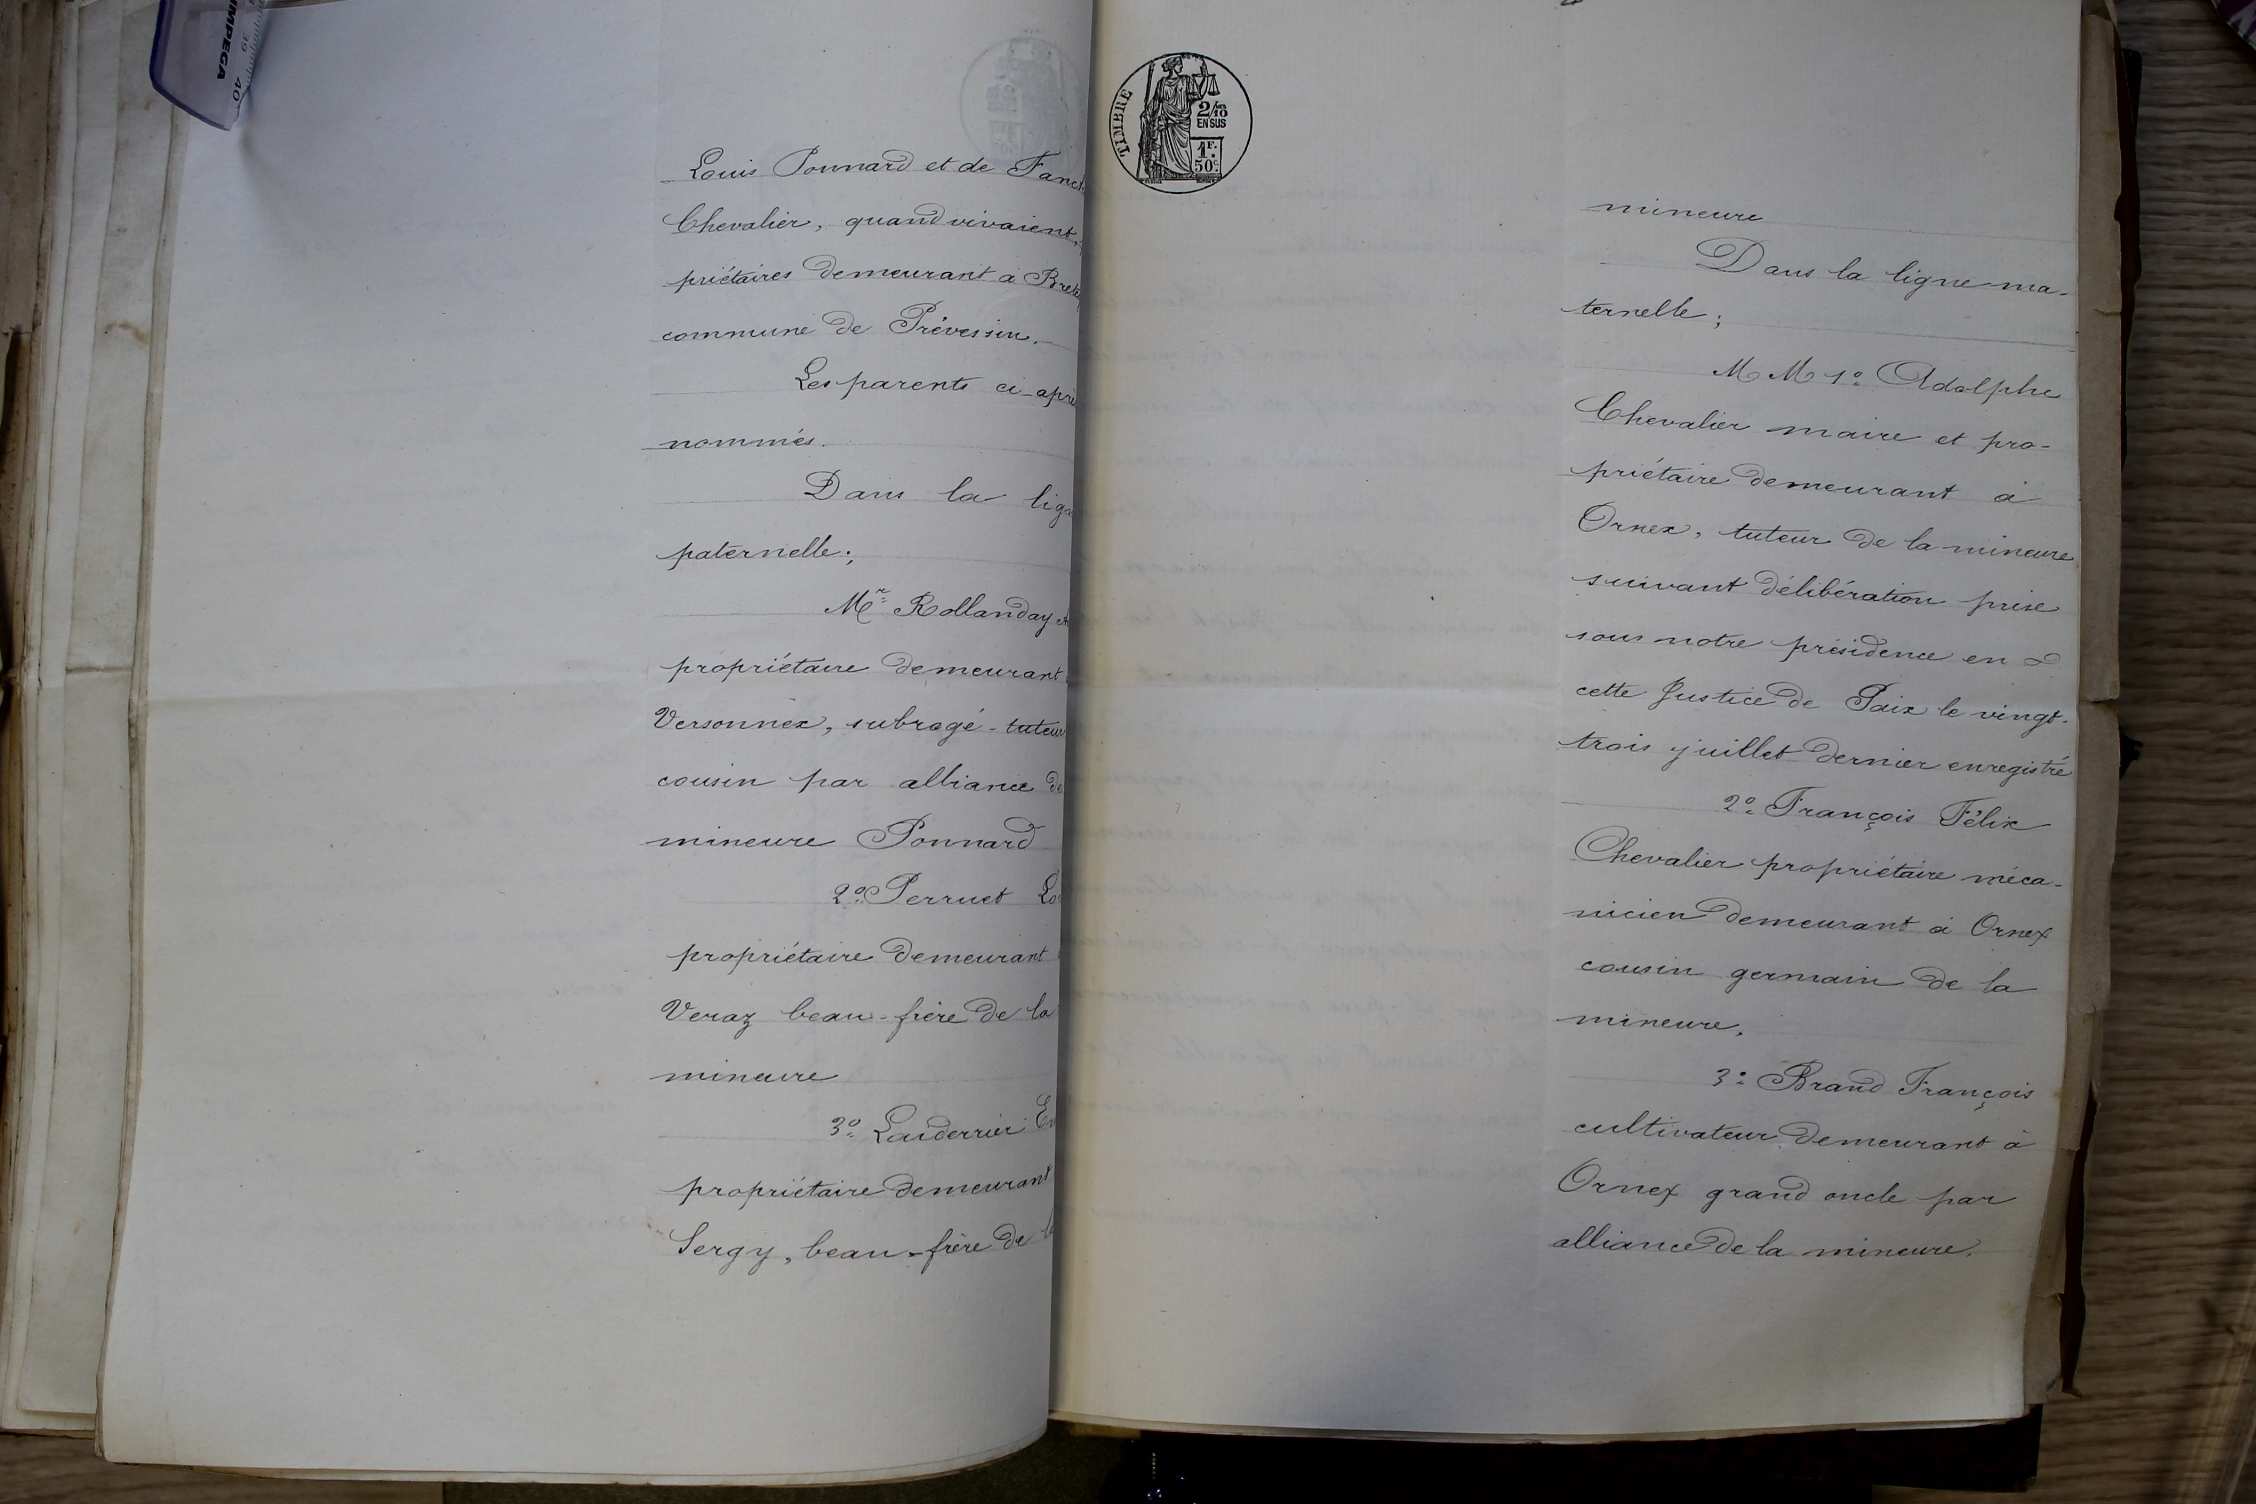 IMPEGA
39
40
Louis Ponnard et de Fanch
Chevalier, quand vivaient,
priétaires demeurant à Brete
commune de Prévessin.
Les parents ci-aprè
nommés.
Dans la lig
paternelle;
Mr Rollanday
propriétaire demeurant
Versonnex, subrogé-tuteur
cousin par alliance de
mineure Ponnard
2o Perruet Lo
propriétaire demeurant
Veraz beau-frère de la
mineure
3o Laiderrier Em
propriétaire demeurant
Sergy, beau-frère de la
TIMBRE
2/10es
EN SUS
1F.
50c.
mineure
Dans la ligne ma-
ternelle;
MM 1o Adolphe
Chevalier maire et pro-
priétaire demeurant à
Ornex, tuteur de la mineure
suivant délibération prise
sous notre présidence en
cette Justice de Paix le vingt-
trois juillet dernier enregistré
2o François Félix
Chevalier propriétaire méca-
nicien demeurant à Ornex
cousin germain de la
mineure,
3o Brand François
cultivateur demeurant à
Ornex grand oncle par
alliance de la mineure.